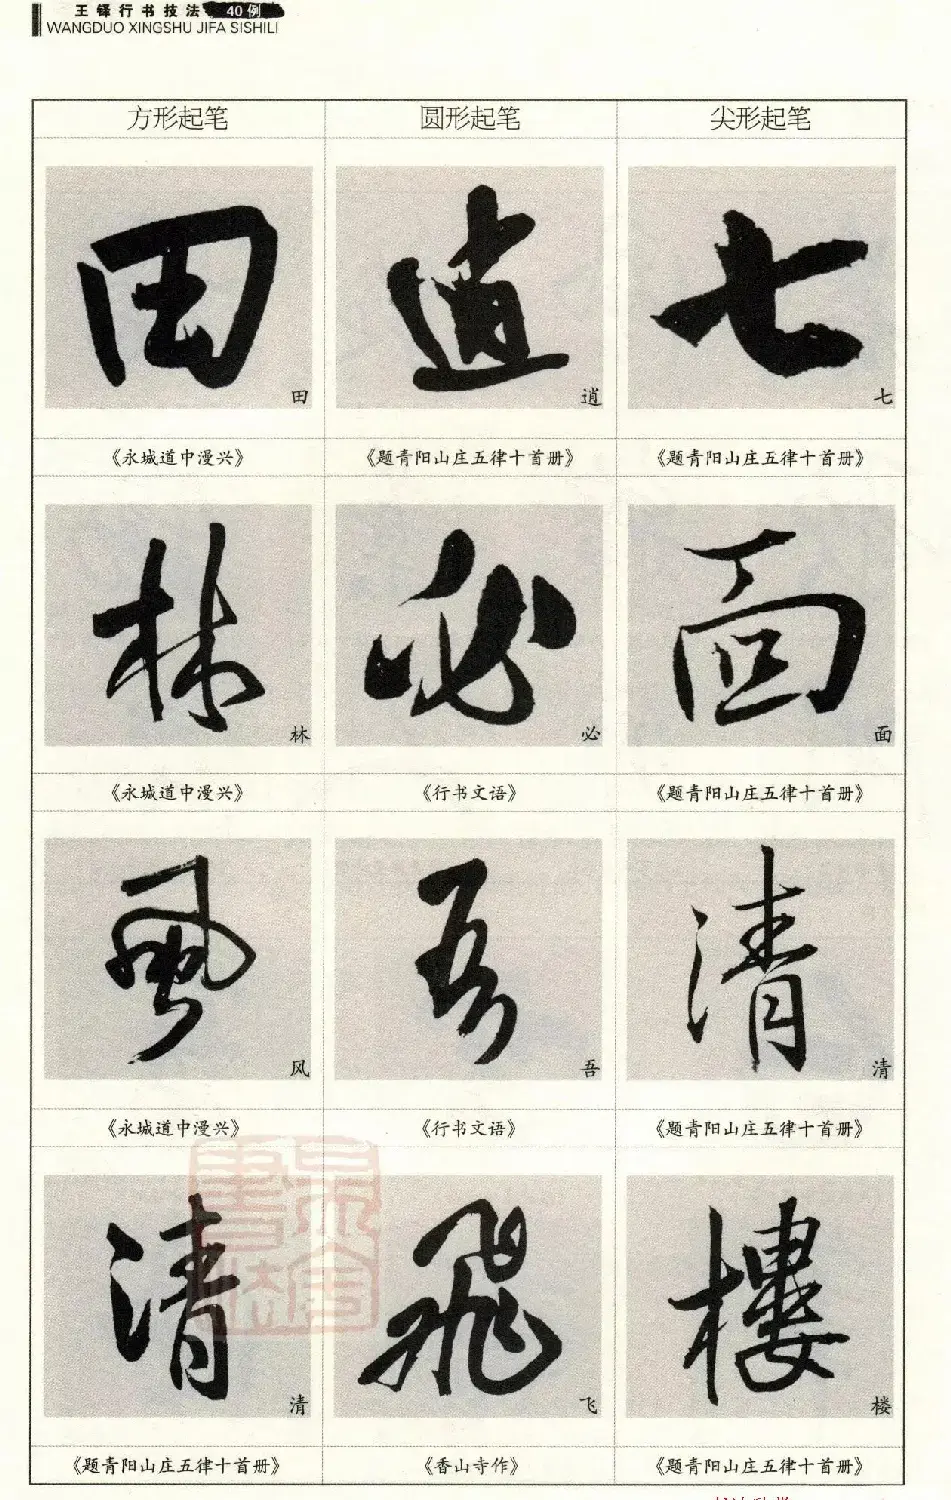 王铎行书技法40例
WANGDUO XINGSHU JIFA SISHILI
方形起笔 圆形起笔 尖形起笔
田 逍 七
田 逍 七
《永城道中漫兴》 《题青阳山庄五律十首册》 《题青阳山庄五律十首册》
林 必 面
林 必 面
《永城道中漫兴》 《行书文语》 《题青阳山庄五律十首册》
風 吾 清
风 吾 清
《永城道中漫兴》 《行书文语》 《题青阳山庄五律十首册》
清 飛 樓
清 飞 楼
《题青阳山庄五律十首册》 《香山寺作》 《题青阳山庄五律十首册》